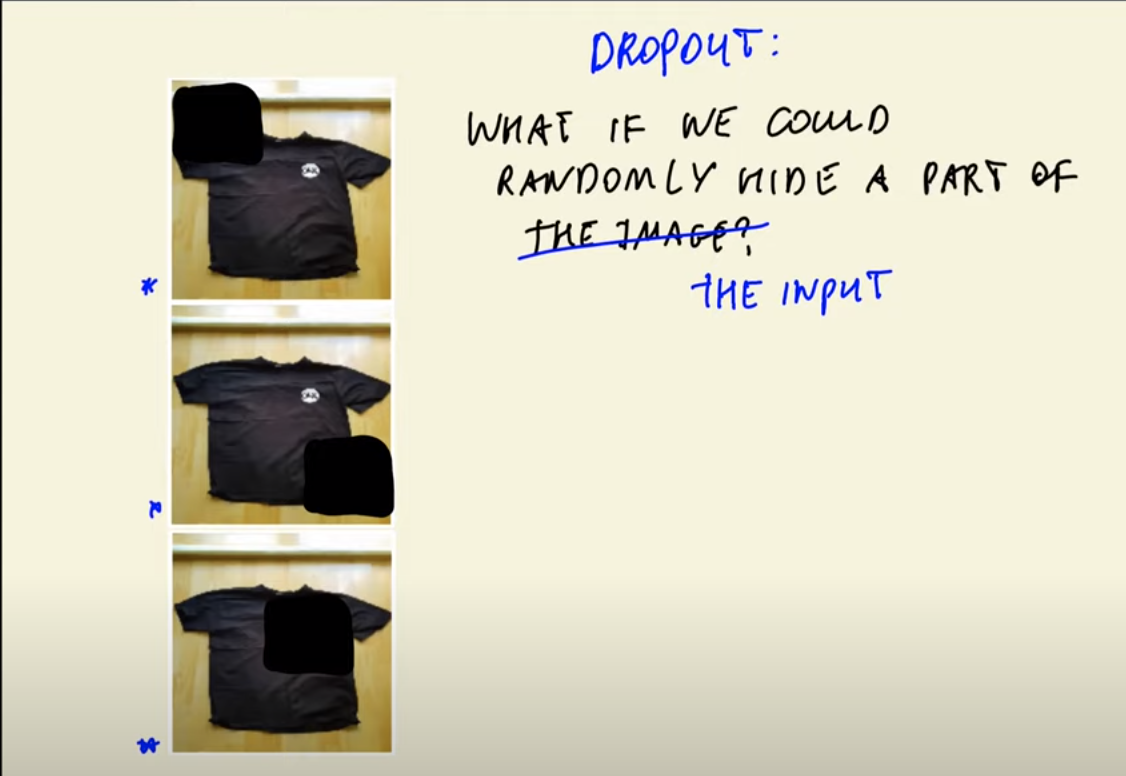 DROPOUT:
WHAT IF WE COULD
RANDOMLY HIDE A PART OF
THE IMAGE?
THE INPUT